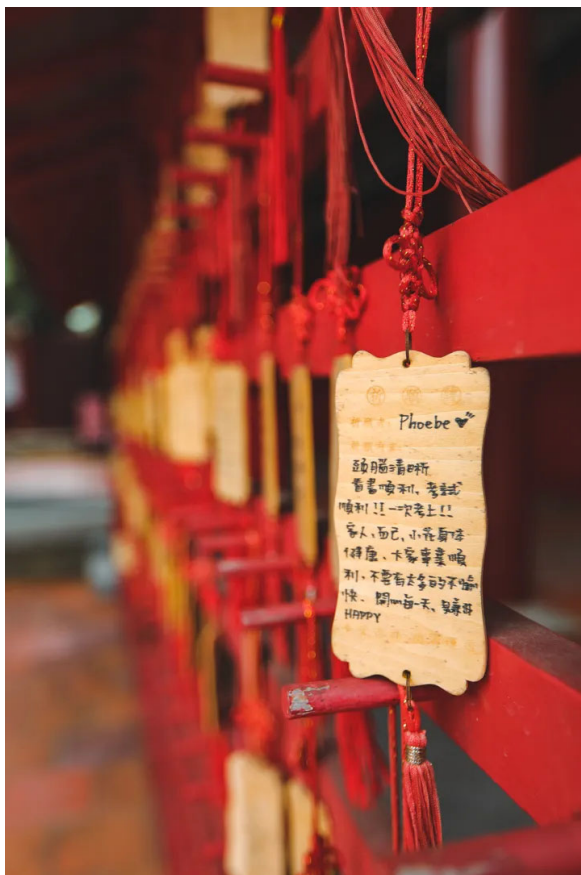 Phoebe
頭腦清晰
看書順利、考試
順利!!一次考上!!
家人、自己、小花身体
健康、大家事業順
利、不要有太多的不愉
快、開心每一天,
HAPPY